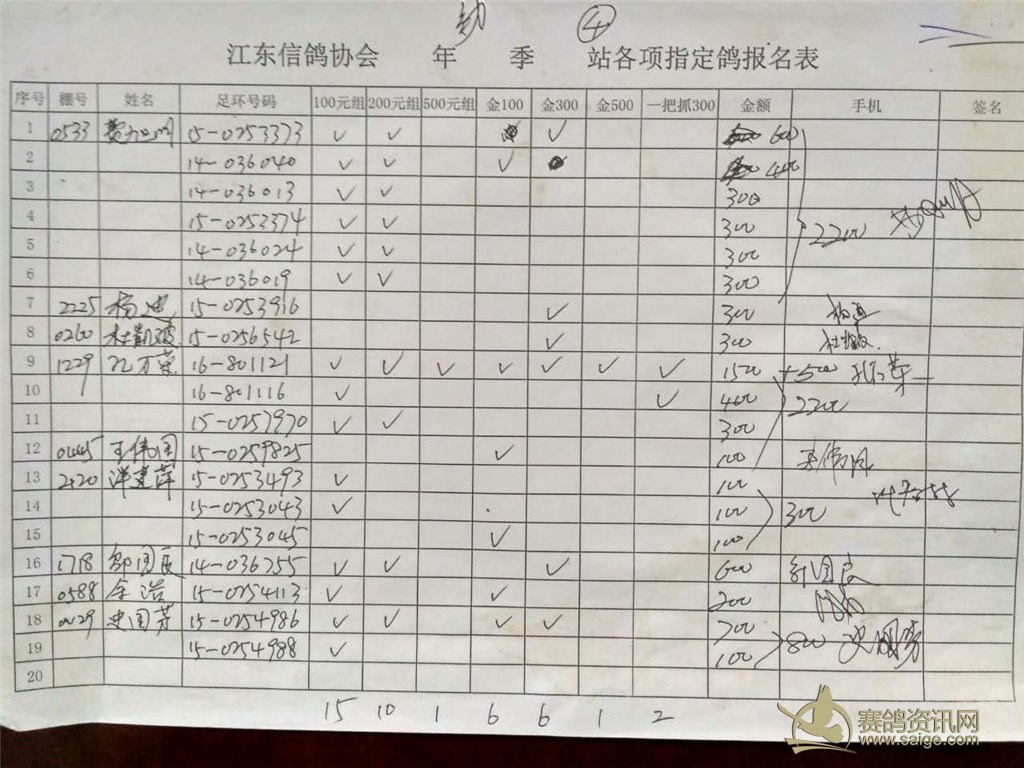 ④
江东信鸽协会 年 季 站各项指定鸽报名表
序号 棚号 姓名 足环号码 100元组 200元组 500元组 金100 金300 金500 一把抓300 金额 手机 签名
1 0533 15-0253373 ✓ ✓ ✓ 600
2 14-036040 ✓ ✓ ✓ 400
3 14-036013 ✓ ✓ 300
4 15-0253374 ✓ ✓ 300 2200
5 14-036024 ✓ ✓ 300
6 14-036019 ✓ ✓ 300
7 2225 杨迪 15-0253916 ✓ 300
8 0260 杜凯波 15-0256542 ✓ 300
9 1229 孔万荣 16-801121 ✓ ✓ ✓ ✓ ✓ ✓ ✓ 1500 +500
10 16-801116 ✓ ✓ 400 2200
11 15-0257970 ✓ ✓ 300
12 0445 王伟国 15-0259825 ✓ 100 王伟国
13 2420 洋建萍 15-0253493 ✓ 100
14 15-0253043 ✓ 100 300
15 15-0253045 ✓ 100
16 1718 邹国良 14-036755 ✓ ✓ ✓ 600 邹国良
17 0588 余浩 15-0254113 ✓ ✓ 200
18 0129 史国芬 15-0254986 ✓ ✓ ✓ ✓ 700 800
19 15-0254988 ✓ 100
20
15 10 1 6 6 1 2
赛鸽资讯网
www.saige.com